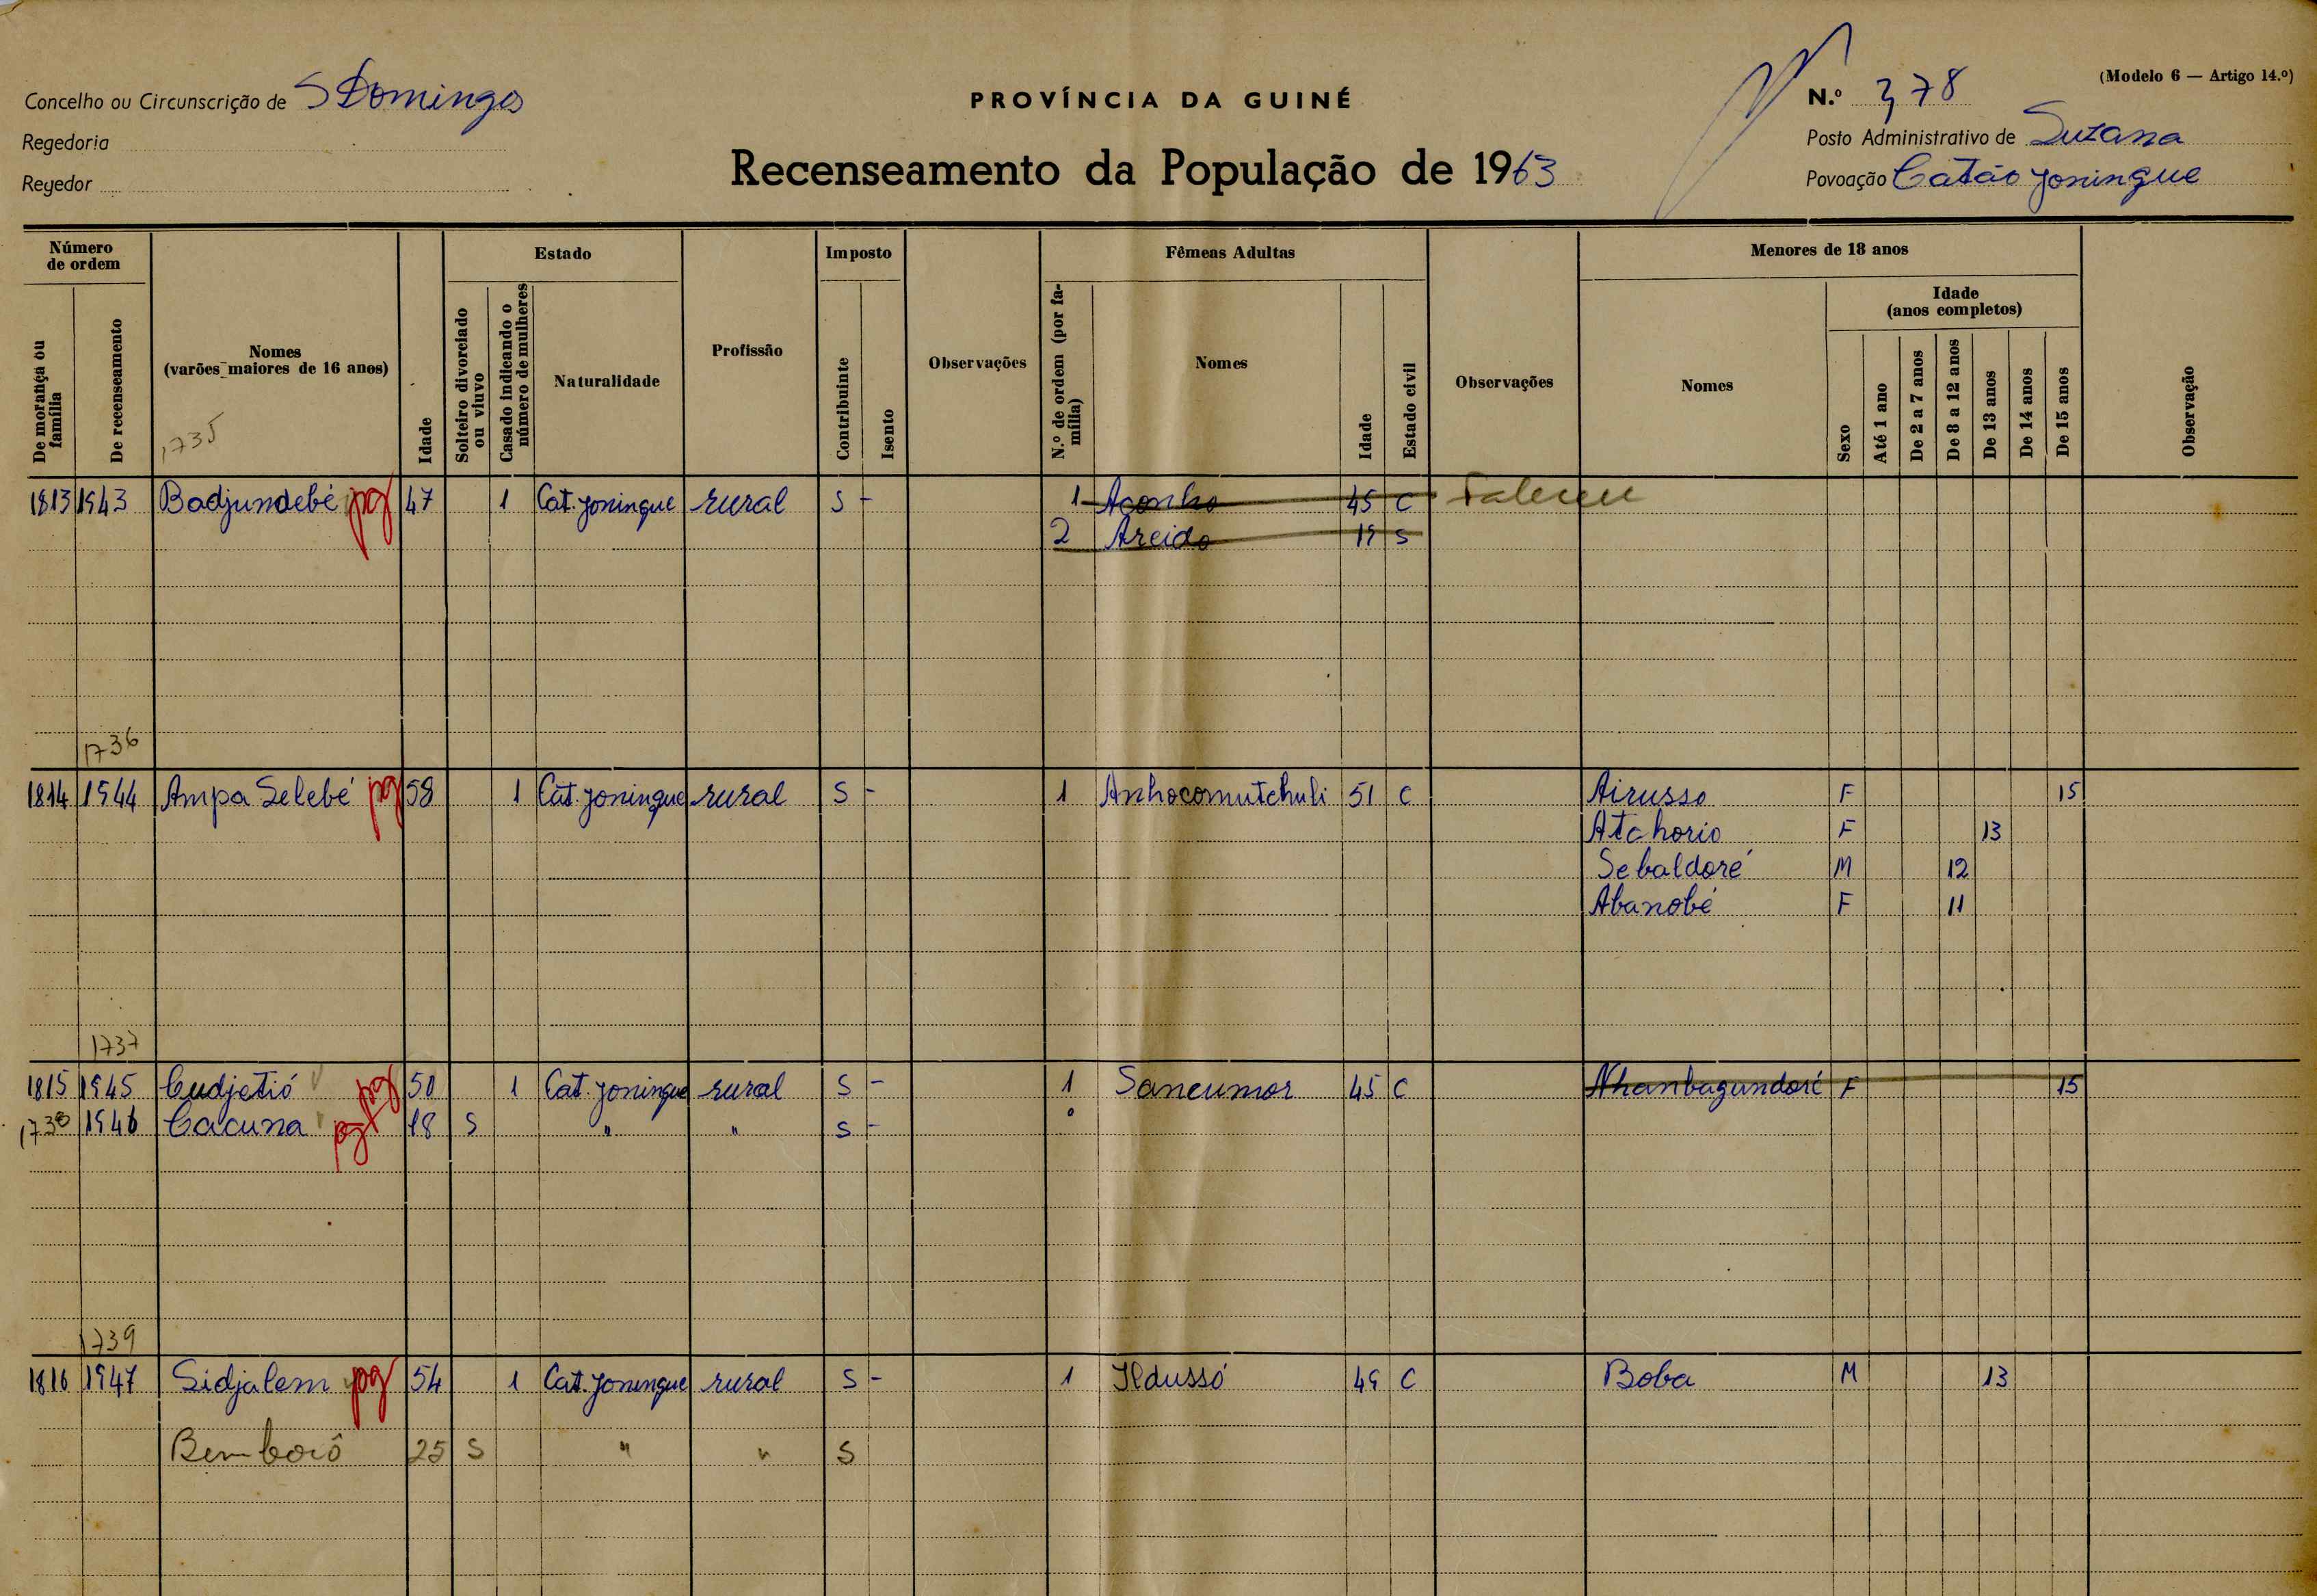 Concelho ou Circunscrição de S Domingos
Regedoria
Regedor
PROVÍNCIA DA GUINÉ
Recenseamento da População de 1963
(Modelo 6 — Artigo 14.º)
N.º 378
Posto Administrativo de Suzana
Povoação Catão Joningue
Número de ordem
De morança ou família
De recenseamento
Nomes
(varões maiores de 16 anos)
1735
Idade
Estado
Solteiro divorciado ou viuvo
Casado indicando o número de mulheres
Naturalidade
Profissão
Imposto
Contribuinte
Isento
Observações
Fêmeas Adultas
N.º de ordem (por família)
Nomes
Idade
Estado civil
Observações
Menores de 18 anos
Nomes
Idade
(anos completos)
Sexo
Até 1 ano
De 2 a 7 anos
De 8 a 12 anos
De 13 anos
De 14 anos
De 15 anos
Observação
1813 1943 Badjundebé pg 47 1 Cat. Joningue rural S - 1 Aconho 45 C Faleceu
2 Areido 19 S
1736
1814 1944 Ampa Selebé pg 58 1 Cat. Joningue rural S - 1 Anhocomutchuli 51 C Airusso F 15
Atchorio F 13
Sebaldoré M 12
Abanobé F 11
1737
1815 1945 Cudjetió pg 50 1 Cat. Joningue rural S - 1 Sancumor 45 C Nhanbagundoré F 15
1738 1946 Cacuna pg 18 S " " S -
1739
1816 1947 Sidjalem pg 54 1 Cat. Joningue rural S - 1 Ildussó 49 C Boba M 13
Bemboiô 25 S " " S